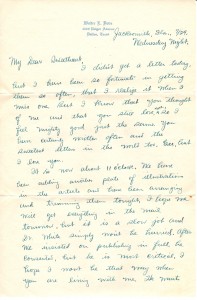 Jacksonville, Fla.,
Wednesday Night.
My Dear Sweetheart,
I didn't get a letter today,
but I have been so fortunate in getting
them so often, that I realize it when I
miss one that I know that you thought
of me and that you still love me. I
feel mighty good just the same. You
have certainly written often and the
sweetest letters in the world too. Dear, but
I love you.
It is now about 11 o'clock. We have
been adding another page of illustrations
in the article and have been arranging
and trimming them tonight. I hope we
will get everything in the mail
tomorrow, but it is a slow job and
simply must be hurried. After
he insisted on publishing in full he
is most critical. I
hope I won't be that way when
you are living with me. It must